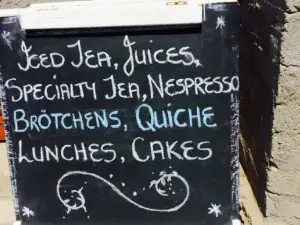 Iced Tea, Juices,
Specialty Tea, Nespresso
Brötchens, Quiche
Lunches, Cakes